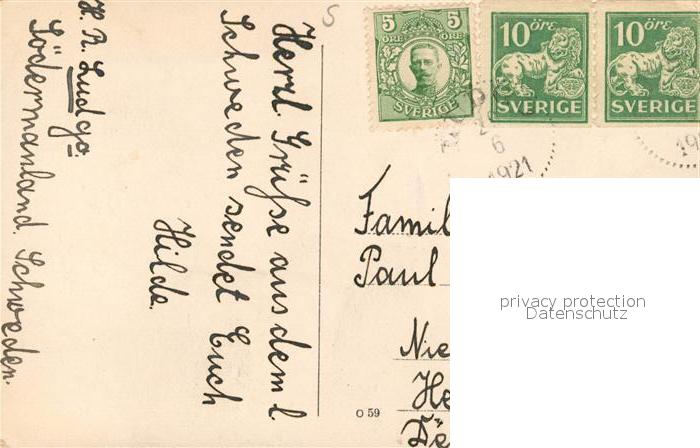 H. R. Ludgo.
Södermanland. Schweden.
Herzl. Grüße aus dem l.
Schweden sendet Euch
Hilde.
S
5 5
ÖRE ÖRE
SVERIGE
10 öre
SVERIGE
10 öre
SVERIGE
6
1921
19
Famil
Paul
Nie
He
O 59
privacy protection
Datenschutz